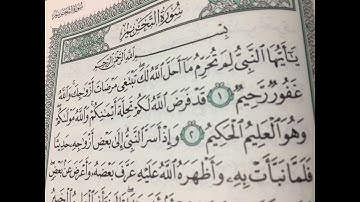 سُورَةُ التَّحْرِيمِ
بِسْمِ اللَّهِ الرَّحْمَٰنِ الرَّحِيمِ
يَا أَيُّهَا النَّبِيُّ لِمَ تُحَرِّمُ مَا أَحَلَّ اللَّهُ لَكَ تَبْتَغِي مَرْضَاتَ أَزْوَاجِكَ وَاللَّهُ
غَفُورٌ رَّحِيمٌ ١ قَدْ فَرَضَ اللَّهُ لَكُمْ تَحِلَّةَ أَيْمَانِكُمْ وَاللَّهُ مَوْلَاكُمْ
وَهُوَ الْعَلِيمُ الْحَكِيمُ ٢ وَإِذْ أَسَرَّ النَّبِيُّ إِلَىٰ بَعْضِ أَزْوَاجِهِ حَدِيثًا
فَلَمَّا نَبَّأَتْ بِهِ وَأَظْهَرَهُ اللَّهُ عَلَيْهِ عَرَّفَ بَعْضَهُ وَأَعْرَضَ عَن بَعْضٍ